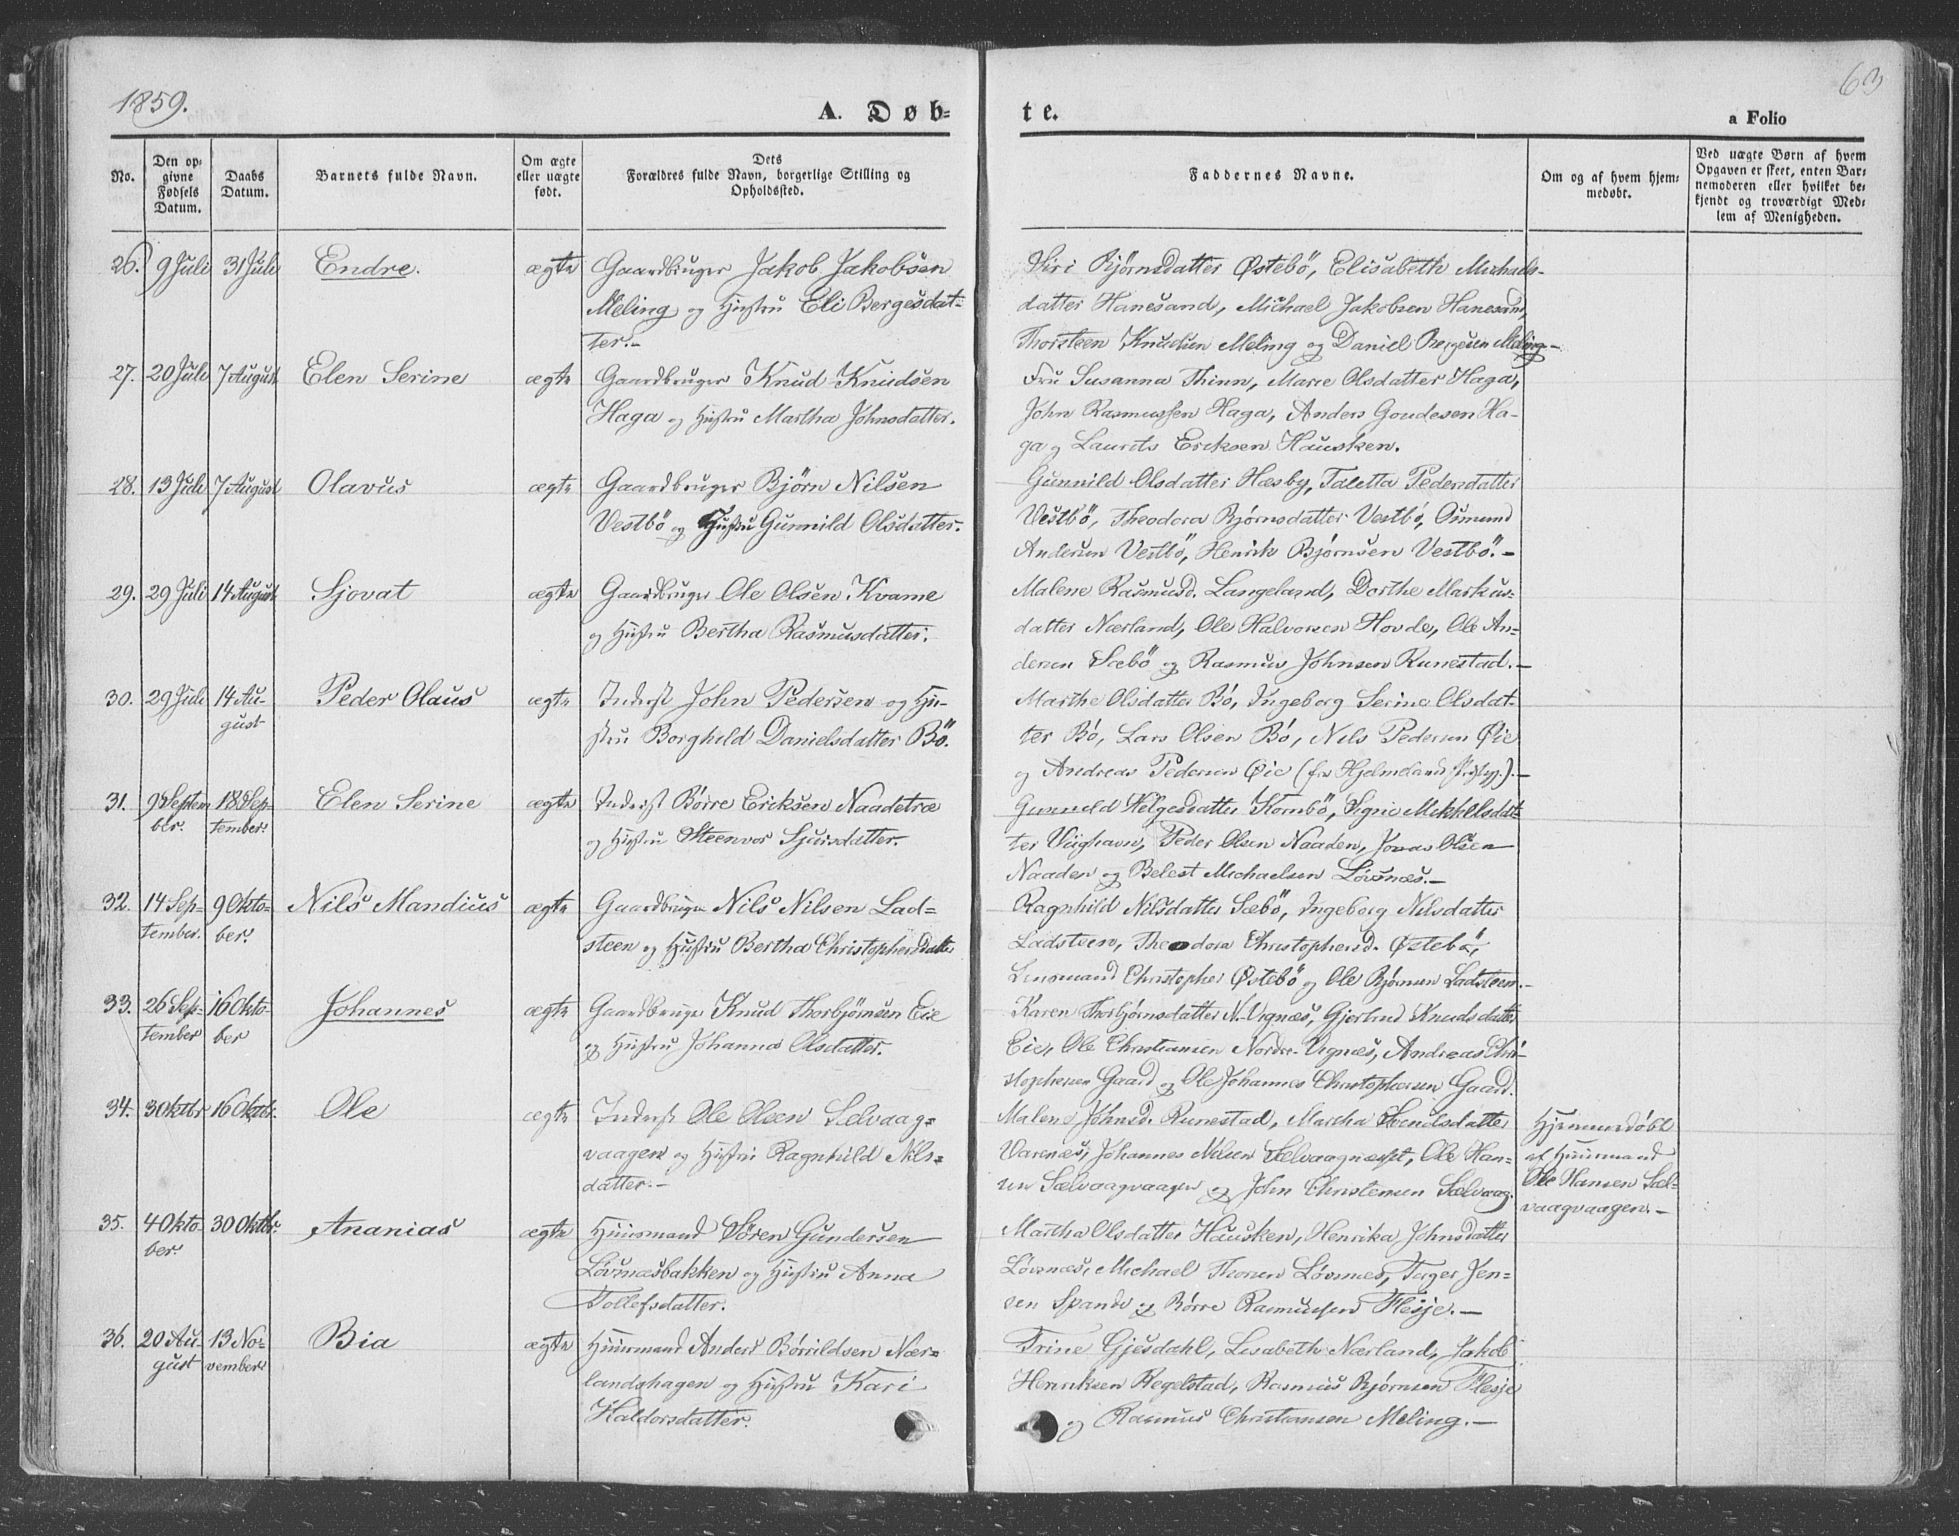 1859.
A. Døb-
te.
63
a Folio
No.
Den op-
givne
Fødsels
Datum.
Daabs
Datum.
Barnets fulde Navn.
Om ægte
eller uægte
født.
Dets
Forældres fulde Navn, borgerlige Stilling og
Opholdssted.
Faddernes Navne.
Om og af hvem hjem-
medøbt.
Ved uægte Børn af hvem
Opgaven er skeet, enten Bar-
nemoderen eller hvilket be-
kjendt og troværdigt Med-
lem af Menigheden.
26. 9 Juli 31 Juli Endre. ægte Gaardbruger Jakob Jakobsen
Meling og Hustru Eli Bergesdat-
ter.-
Siri Bjørnsdatter Østebö, Elisabeth Michaels-
datter Hanesand, Michael Jakobsen Hanesand,
Thorsteen Knudsen Meling og Daniel Bergesen Meling-
27. 20 Juli 7 August Elen Serine ægte Gaardbruger Knud Knudsen
Haga og Hustru Martha Johnsdatter.
Fru Susanna Thinn, Marie Olsdatter Haga,
John Rasmussen Haga, Anders Goudesen Ha-
ga og Laurits Eriksen Hausken.
28. 13 Juli 7 August Olavus ægte Gaardbruger Bjørn Nilsen
Vestbö og Hustru Gunnild Olsdatter.
Gunnild Olsdatter Hæsby, Taletta Pedersdatter
Vestbö, Theodora Bjørnsdatter Vestbö, Osmund
Andersen Vestbö, Henrik Bjørnsen Vestbö.-
29. 29 Juli 14 August Sjovat ægte Gaardbruger Ole Olsen Kvame
og Hustru Bertha Rasmusdatter.
Malene Rasmusd. Langeland, Dorthe Markus-
datter Nærland, Ole Halvorsen Hovde, Ole An-
dersen Sæbö og Rasmus Johnsen Runestad.-
30. 29 Juli 14 Au-
gust
Peder Olaus ægte Inderst John Pedersen og Hu-
stru Borghild Danielsdatter Bö.
Marthe Olsdatter Bö, Ingeborg Serine Olsdat-
ter Bö, Lars Olsen Bö, Nils Pedersen Øie
og Andreas Pedersen Øie (fra Hjelmelands Præstgj.).-
31. 9 Septem-
ber.
18 Sep-
tember.
Elen Serine ægte Inderst Børre Eriksen Naadetræ
og Hustru Steenvor Sjursdatter.
Gunneld Helgesdatter Kornbö, Signe Mikkelsdat-
ter Viighavn, Peder Olsen Naaden, Jonas Olsen
Naaden og Belest Michaelsen Lövsnæs.-
32. 14 Sep-
tember.
9 Okto-
ber.
Nils Mandius ægte Gaardbruger Nils Nilsen Lad-
steen og Hustru Bertha Christophersdatter
Ragnhild Nilsdatter Sæbö, Ingeborg Nilsdatter
Ladsteen, Theodora Christophersd. Østebö,
Lensmand Christopher Østebö og Ole Bjørnsen Ladsteen.-
33. 26 Sep-
tember
16 Okto-
ber
Johannes ægte Gaardbruger Knud Thorbjørnsen Eie
og Hustru Johanna Olsdatter.
Karen Thorbjørnsdatter N. Vignæs, Gjertrud Knudsdatter
Eie, Ole Christiansen Nordre-Vignæs, Andreas Chri-
stophersen Gaard og Ole Johannes Christophersen Gaard.
34. 3 Oktbr. 16 Oktbr. Ole ægte Inderst Ole Olsen Selvaag-
vaagen og Hustru Ragnhild Nils-
datter.-
Malene Johnsd. Runestad, Martha Svendsdatter
Varenæs, Johannes Nilsen Sælvaagnæsset, Ole Han-
sen Sælvaagvaagen og John Christensen Sælvaag.
Hjemmedöbt
af Huusmand
Ole Hansen Sæl-
vaagvaagen.-
35. 4 Okto-
ber
30 Oktbr. Ananias ægte Huusmand Sören Gundersen
Lövsnæsbakken og Hustru Anna
Tollefsdatter.
Martha Olsdatter Hausken, Henrika Johnsdatter
Lövsnæs, Michael Thorsen Lövsnæs, Torger Jen-
sen Spande og Børre Rasmussen Flesje.-
36. 20 Au-
gust
13 No-
vember
Bia ægte Huusmand Anders Börrildsen Nær-
landshagen og Hustru Kari
Haldorsdatter.
Trine Gjesdahl, Lisabeth Nærland, Jakob
Henriksen Regelstad, Rasmus Bjørnsen Flesje
og Rasmus Christiansen Meling.-